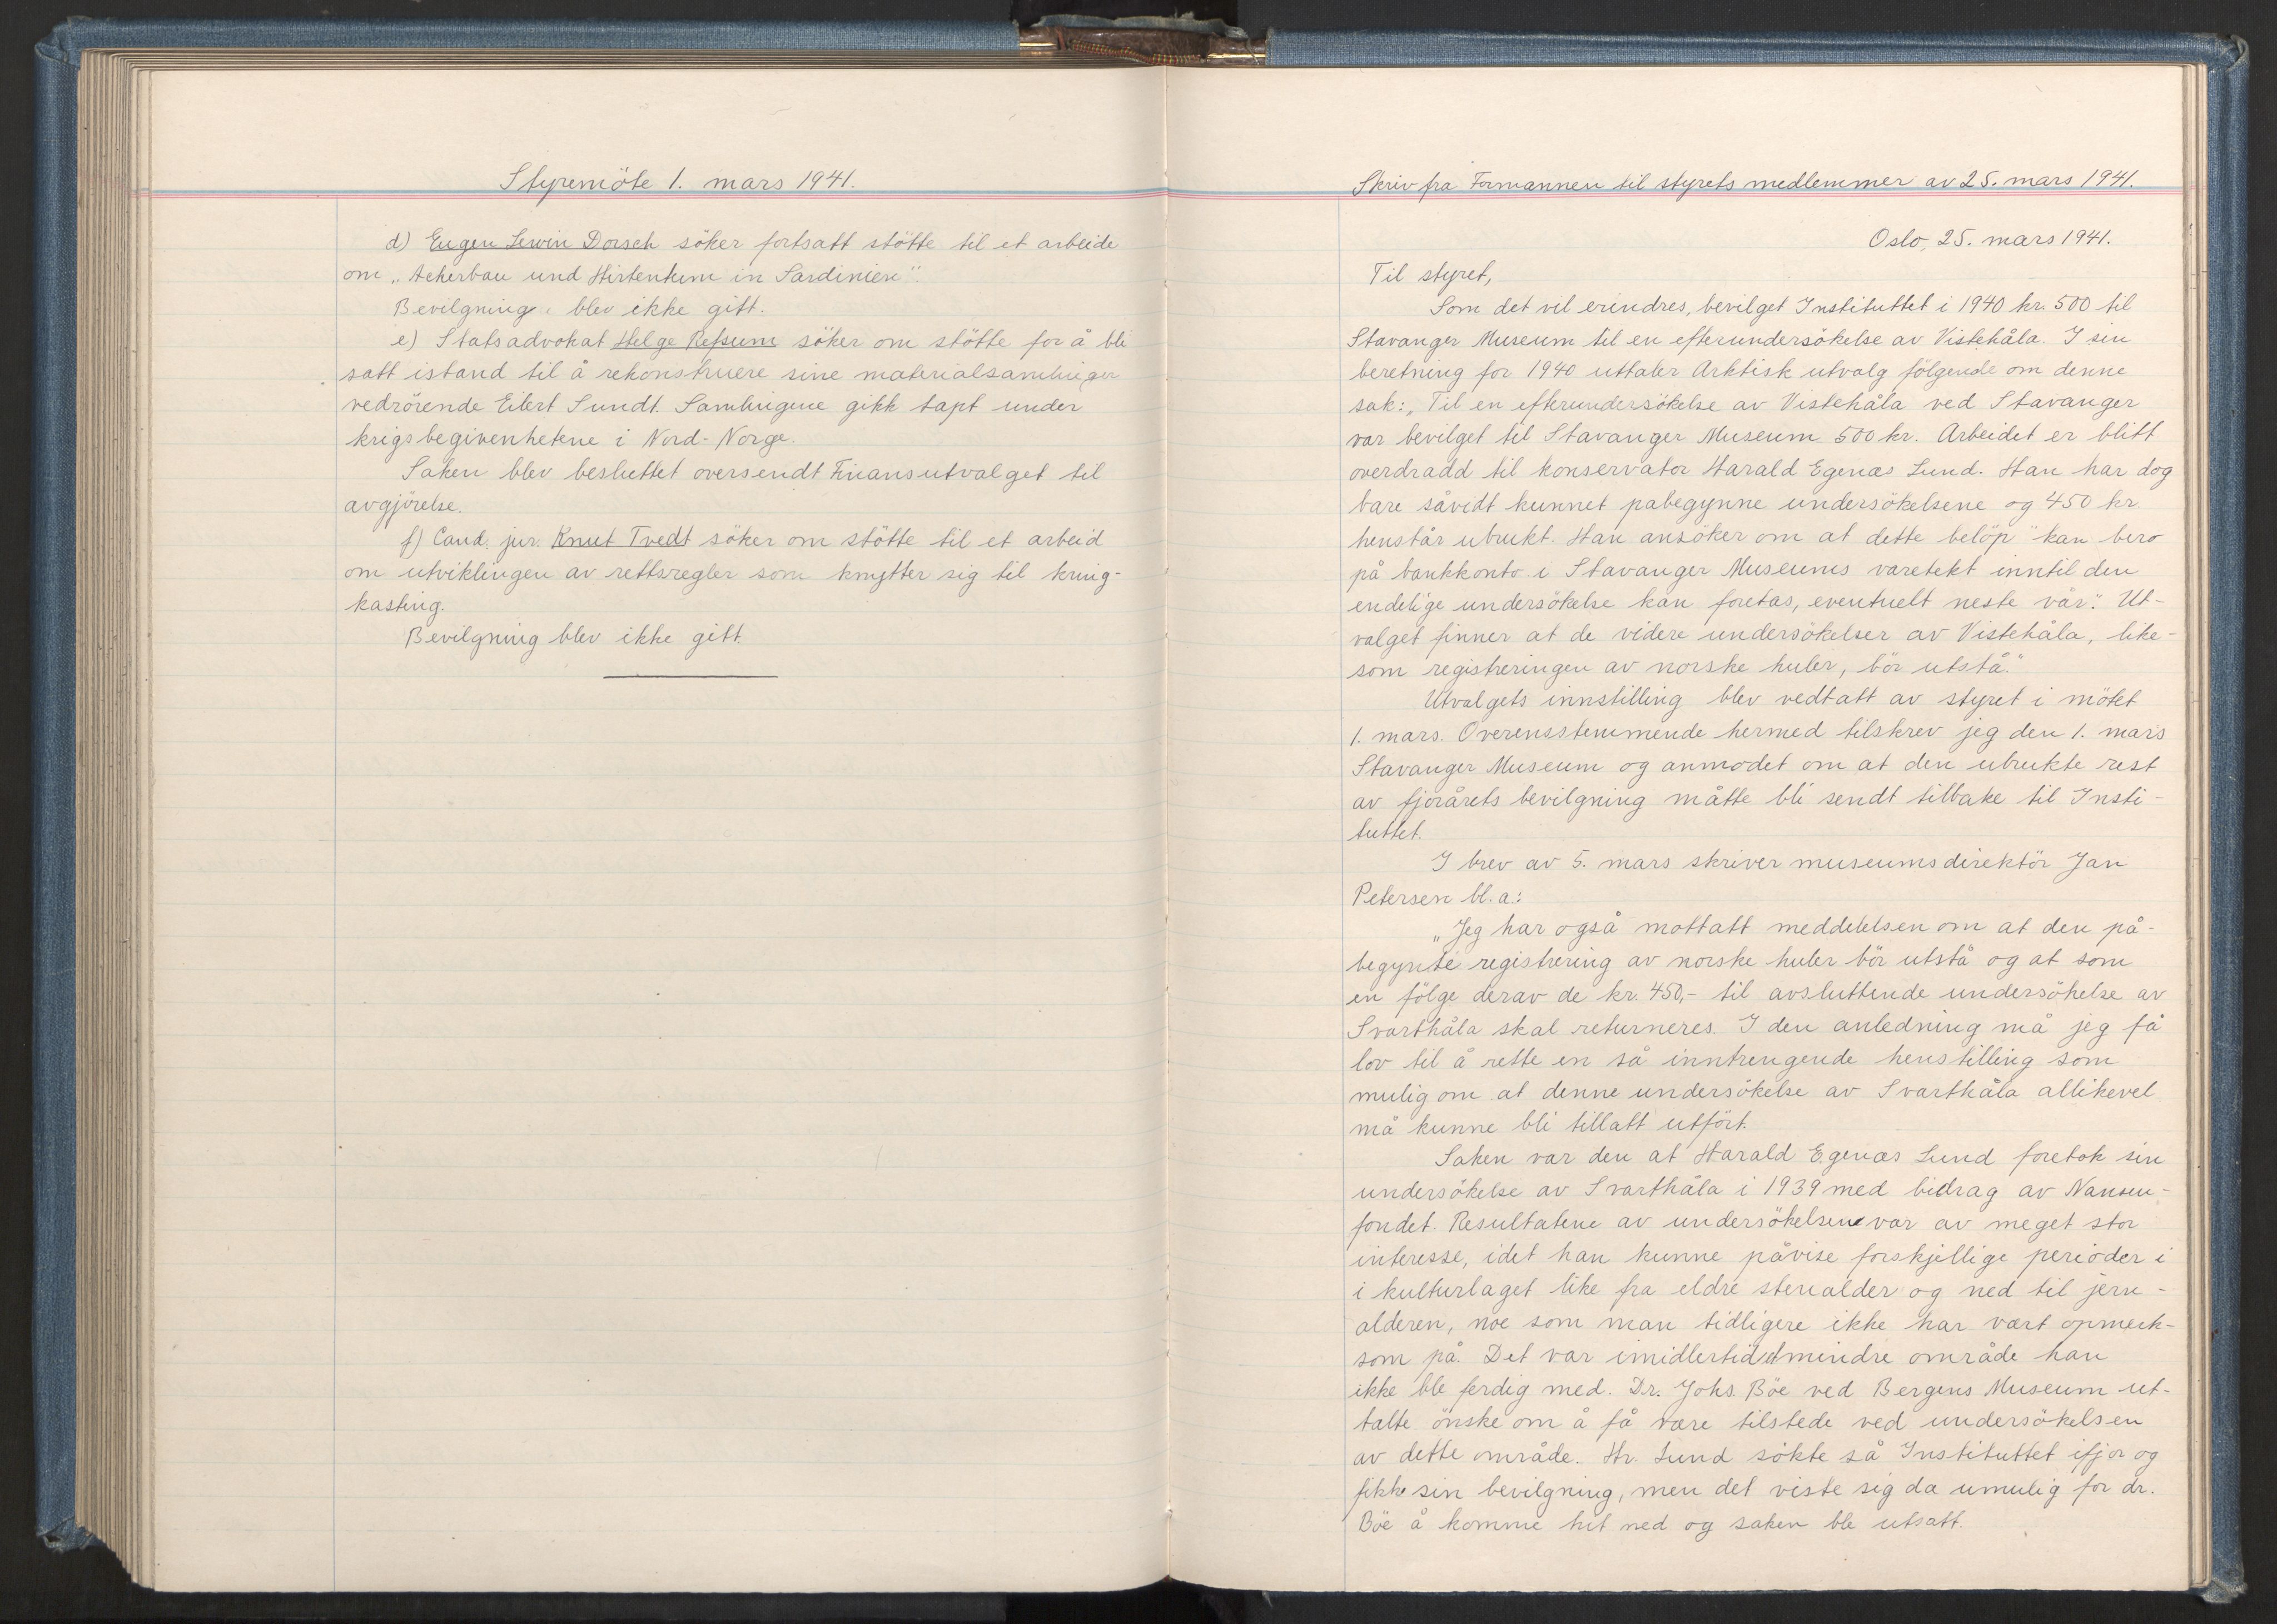 Styremöte 1. mars 1941.
d) Eugen Lewin Dorsch söker fortsatt stötte til et arbeide
om „Ackerbau und Hirtentum in Sardinien".
Bevilgning blev ikke gitt.
e) Statsadvokat Helge Refsum söker om stötte for å bli
satt istand til å rekonstruere sine materialsamlinger
vedrörende Eilert Sundt. Samlingene gikk tapt under
krigsbegivenhetene i Nord-Norge.
Saken blev besluttet oversendt Finansutvalget til
avgjörelse.
f) Cand. jur. Knut Tvedt söker om stötte til et arbeid
om utviklingen av rettsregler som knytter sig til kring-
kasting.
Bevilgning blev ikke gitt.
Skriv fra Formannen til styrets medlemmer av 25. mars 1941.
Oslo, 25. mars 1941.
Til styret,
Som det vil erindres, bevilget Instituttet i 1940 kr. 500 til
Stavanger Museum til en efterundersökelse av Vistehåla. I sin
beretning for 1940 uttaler Arktisk utvalg fölgende om denne
sak: „Til en efterundersökelse av Vistehåla ved Stavanger
var bevilget til Stavanger Museum 500 kr. Arbeidet er blitt
overdradd til konservator Harald Egenæs Lund. Han har dog
bare såvidt kunnet pabegynne undersökelsene og 450 kr.
henstår ubrukt. Han ansöker om at dette belöp "kan bero
på bankkonto i Stavanger Museums varetekt inntil den
endelige undersökelse kan foretas, eventuelt neste vår". Ut-
valget finner at de videre undersökelser av Vistehåla, like-
som registreringen av norske huler, bör utstå."
Utvalgets innstilling blev vedtatt av styret i mötet
1. mars. Overensstemmende hermed tilskrev jeg den 1. mars
Stavanger Museum og anmodet om at den ubrukte rest
av fjorårets bevilgning måtte bli sendt tilbake til Insti-
tuttet.
I brev av 5. mars skriver museumsdirektör Jan
Petersen bl.a.:
„Jeg har også mottatt meddelelsen om at den på-
begynte registrering av norske huler bör utstå og at som
en fölge derav de kr. 450,- til avsluttende undersökelse av
Svarthåla skal returneres. I den anledning må jeg få
lov til å rette en så inntrengende henstilling som
mulig om at denne undersökelse av Svarthåla allikevel
må kunne bli tillatt utfört.
Saken var den at Harald Egenæs Lund foretok sin
undersökelse av Svarthåla i 1939 med bidrag av Nansen-
fondet. Resultatene av undersökelsene var av meget stor
interesse, idet han kunne påvise forskjellige perioder i
i kulturlaget like fra eldre stenalder og ned til jern-
alderen, noe som man tidligere ikke har vært opmerk-
som på. Det var imidlertid et mindre område han
ikke ble ferdig med. Dr. Johs. Böe ved Bergens Museum ut-
talte önske om å få være tilstede ved undersökelsen
av dette område. Hr. Lund sökte så Instituttet ifjor og
fikk sin bevilgning, men det viste sig da umulig for dr.
Böe å komme hit ned og saken ble utsatt.